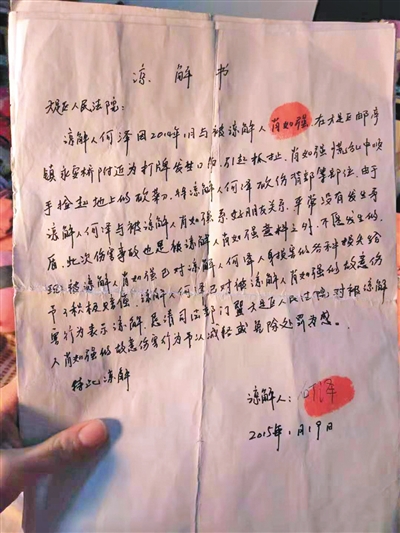 谅解书
大足区人民法院:
谅解人何泽因2014年1月与被谅解人肖如强在大足区邮亭
镇永安桥附近为打牌发生口角,引起抓扯,肖如强慌乱中顺
手拾起地上的砍菜刀,将谅解人何泽砍伤背部等部位,由于
谅解人何泽与被谅解人肖如强系好朋友关系,平常没有发生矛
盾,此次伤害事故也是被谅解人肖如强意料之外,不愿发生的。
现被谅解人肖如强已对谅解人何泽人身损害的各种损失给
予了积极赔偿,谅解人何泽已对被谅解人肖如强的故意伤
害行为表示谅解,恳请司法部门暨大足区人民法院对被谅解
人肖如强的故意伤害行为予以减轻或免除处罚为感。
特此谅解
谅解人:何泽
2015年1月19日